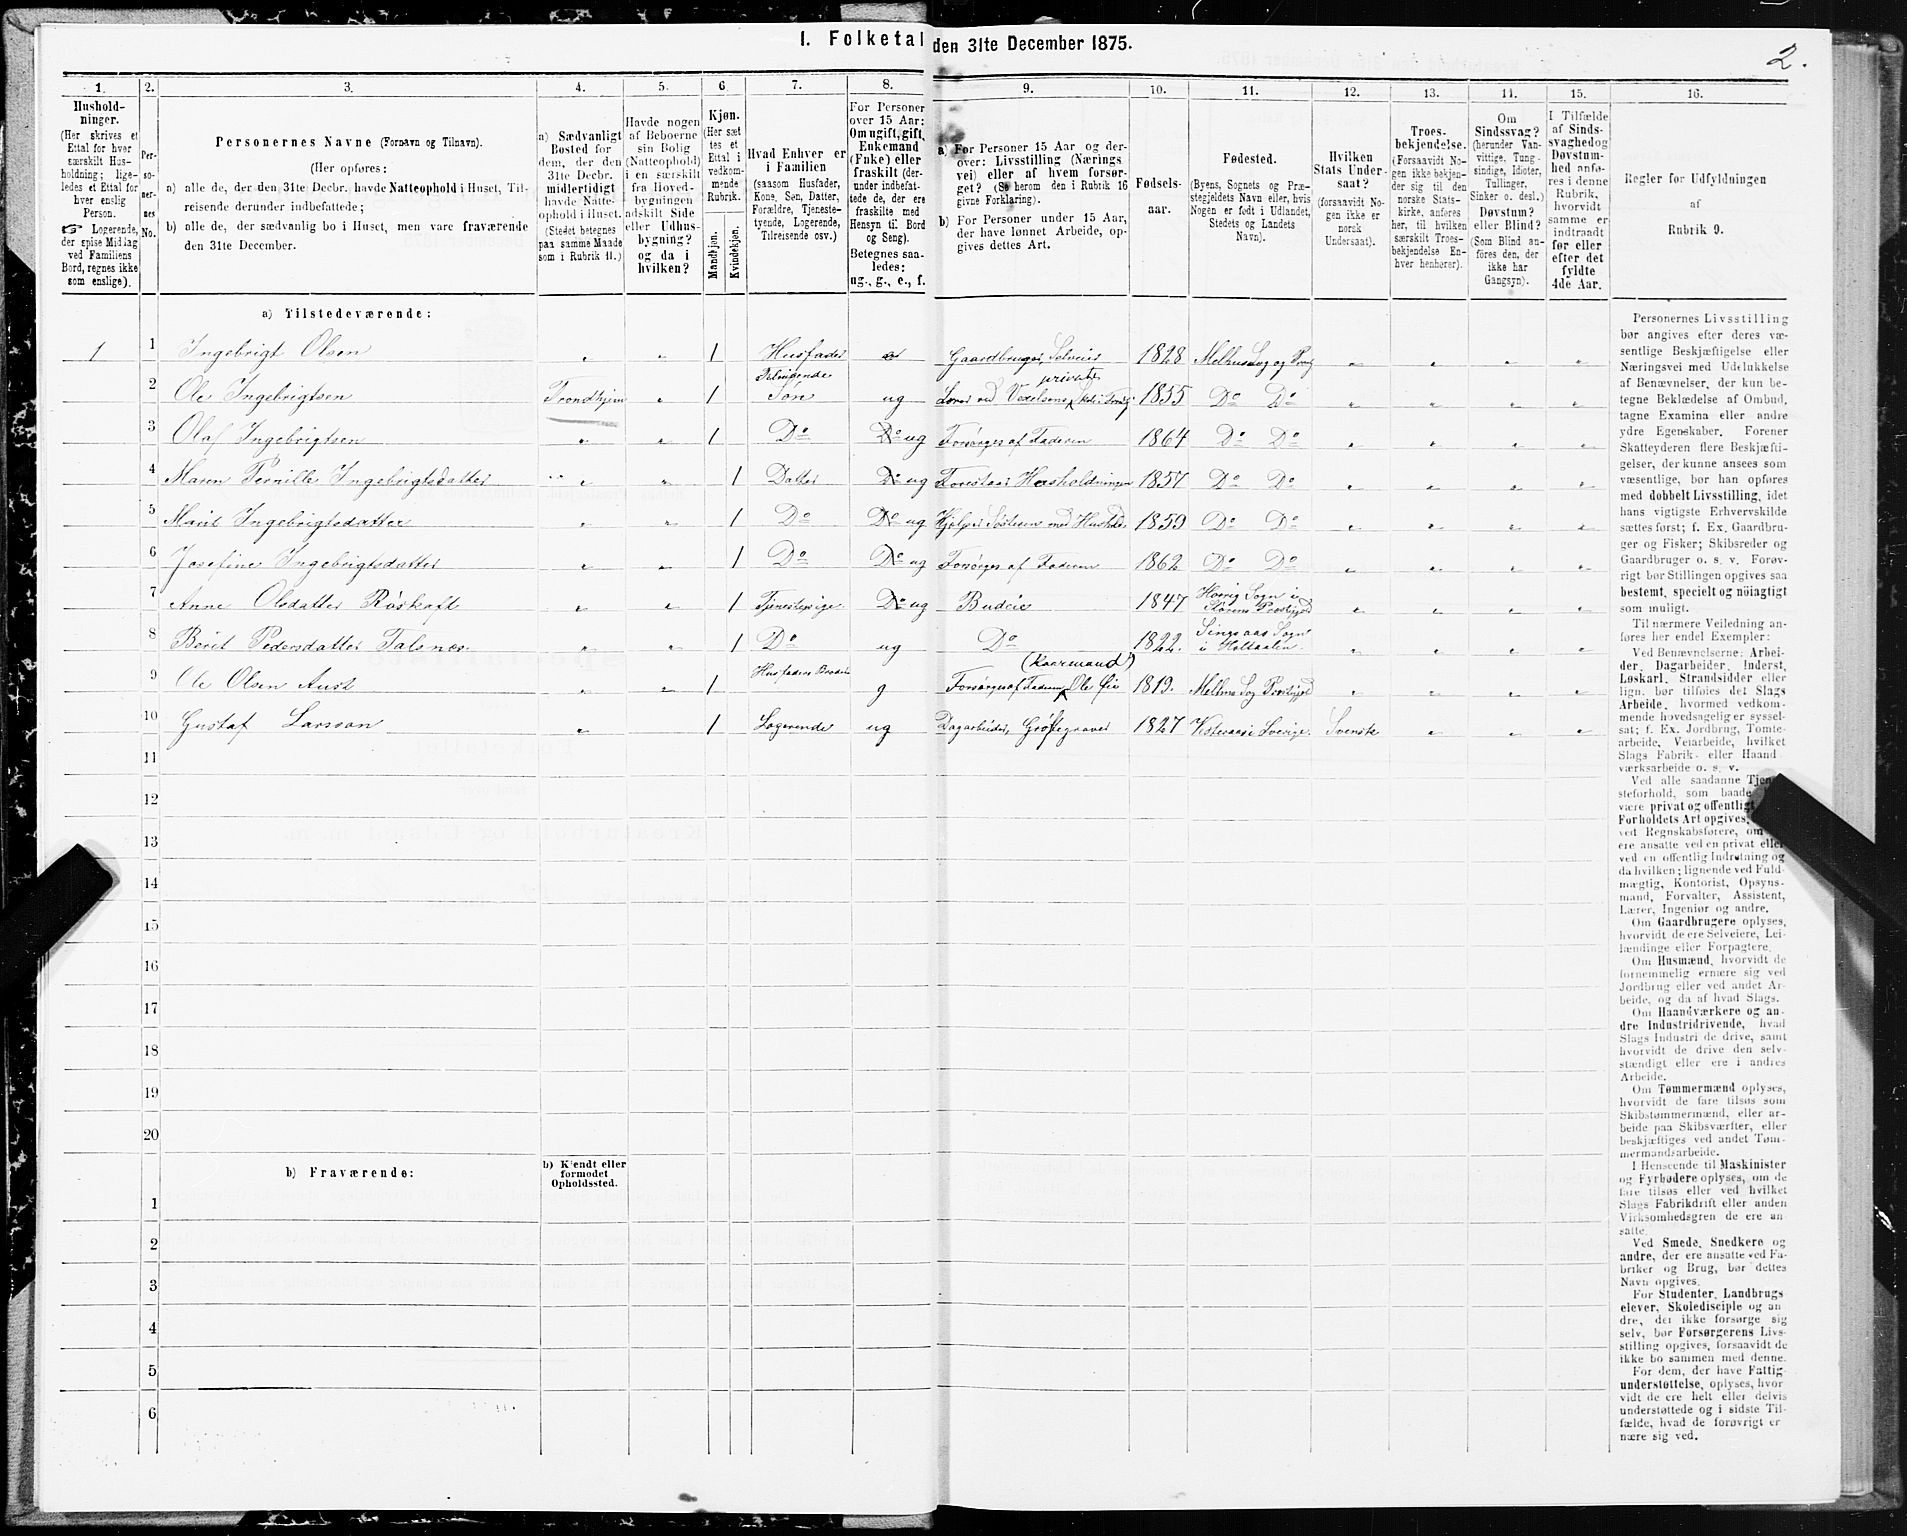 I. Folketal den 31te December 1875.
2.
1.
2.
3.
4.
5.
6.
7.
8.
9.
10.
11.
12.
13.
14.
15.
16.
Hushold-
ninger.
(Her skrives et
Ettal for hver
særskilt Hus-
holdning; lige-
ledes et Ettal for
hver enslig
Person.
☞ Logerende,
der spise Middag
ved Familiens
Bord, regnes ikke
som enslige).
Per-
soner-
nes
No.
Personernes Navne (Fornavn og Tilnavn).
(Her opføres:
a) alle de, der den 31te Decbr. havde Natteophold i Huset, Til-
reisende derunder indbefattede;
b) alle de, der sædvanlig bo i Huset, men vare fraværende
den 31te December.
a) Sædvanligt
Bosted for
dem, der den
31te Decbr.
midlertidigt
havde Natte-
ophold i Huset.
(Stedet betegnes
paa samme Maade
som i Rubrik 11.)
Havde nogen
af Beboerne
sin Bolig
(Natteophold)
i en særskilt
fra Hoved-
bygningen
adskilt Side
eller Udhus-
bygning?
og da i
hvilken?
Kjøn.
(Her sæt-
tes et
Ettal i
vedkom-
mende
Rubrik.
Mandkjøn.
Kvindekjøn.
Hvad Enhver er
i Familien
(saasom Husfader,
Kone, Søn, Datter,
Forældre, Tjeneste-
tyende, Logerende,
Tilreisende osv.)
For Personer
over 15 Aar:
Om ugift, gift,
Enkemand
(Enke) eller
fraskilt (der-
under indbefat-
tede de, der ere
fraskilte med
Hensyn til Bord
og Seng).
Betegnes saa-
ledes:
ug., g., e., f.
a) For Personer 15 Aar og der-
over: Livsstilling (Nærings
vei) eller af hvem forsør-
get? (Se herom den i Rubrik 16
givne Forklaring).
b) For Personer under 15 Aar,
der have lønnet Arbeide, op-
gives dettes Art.
Fødsels-
aar.
Fødested.
(Byens, Sognets og Præ-
stegjeldets Navn eller, hvis
Nogen er født i Udlandet,
Stedets og Landets
Navn).
Hvilken
Stats Under-
saat?
(forsaavidt No-
gen ikke er
norsk
Undersaat).
Troes-
bekjendelse.
(Forsaavidt No-
gen ikke bekjen-
der sig til den
norske Stats-
kirke, anføres
her, til hvilken
særskilt Troes-
bekjendelse En-
hver henhører).
Om
Sindssvag?
(herunder Van-
vittige, Tung-
sindige, Idioter,
Tullinger,
Sinker o. desl.)
Døvstum?
eller Blind?
(Som Blind an-
føres den, der
ikke har
Gangsyn).
I Tilfælde
af Sinds-
svaghed og
Døvstum-
hed anfø-
res i denne
Rubrik,
hvorvidt
samme er
indtraadt
før eller
efter det
fyldte
4de Aar.
Regler for Udfyldningen
af
Rubrik 9.
a) Tilstedeværende:
1 1 Ingebrigt Olsen „ „ 1 Husfader Gaardbruger, Selveier 1828 Melhus Sog og „ „ „ „
Tilreisende private
2 Ole Ingebrigtsen Trondhjem „ 1 Søn ug ved 1855 Do Do „ „ „ „
3 Olaf Ingebrigtsen „ „ 1 Do Do ug Forsørges af Faderen 1864 Do Do „ „ „ „
4 Maren Pernille Ingebrigtsdatter „ „ 1 Datter Do ug Forestaar Husholdningen 1857 Do Do „ „ „ „
5 Marit Ingebrigtsdatter „ „ 1 Do Do ug Hjelper Søsteren med 1859 Do Do „ „ „ „
6 Josefine Ingebrigtsdatter „ „ 1 Do Do ug Forsørges af Faderen 1862 Do Do „ „ „ „
7 Anne Olsdatter Røskaft „ „ 1 Tjenestepige Do ug Budeie 1847 Horrig Sogn i Størens Præstegjeld „ „ „ „
8 Berit Pedersdatter Talsnes „ „ 1 Do ug Do 1822. Singsaas Sogn i Holtaalen „ „ „ „
(Kaarmand)
9 Ole Olsen Aust „ „ 1 Husfaders Broder g Forsørges af Faderen Ole Øie 1819. Melhus Sog „ „ „ „
10 Gustaf Larsson „ 1 Logerende ug Dagarbeider, Grøftegraver 1827 Vesteraas i Sverige. Svensk „ „ „
11
12
13
14
15
16
17
18
19
20
b) Fraværende:
b) Kjendt eller
formodet
Opholdssted.
1
2
3
4
5
6
Personernes Livsstilling
bør angives efter deres væ-
sentlige Beskjæftigelse eller
Næringsvei med Udelukkelse
af Benævnelser, der kun be-
tegne Beklædelse af Ombud,
tagne Examina eller andre
ydre Egenskaber. Forener
Skatteyderen flere Beskjæfti-
gelser, der kunne ansees som
væsentlige, bør han opgives
med dobbelt Livsstilling, idet
hans vigtigste Erhvervskilde
sættes først; f. Ex. Gaardbru-
ger og Fisker; Skibsreder og
Gaardbruger o. s. v. Forøv-
rigt bør Stillingen opgives saa
bestemt, specielt og nöiagtigt
som muligt.
Til nærmere Veiledning an-
føres her endel Exempler:
Ved Benævnelserne: Arbei-
der, Dagarbeider, Inderst,
Løskarl, Strandsidder eller
lign. bør tilføies det Slags
Arbeide, hvormed vedkom-
mende hovedsagelig er syssel-
sat; f. Ex. Jordbrug, Tømte-
arbeide, Veiarbeide, hvilket
Slags Fabrik- eller Haand-
værksarbeide o. s. v.
Ved alle saadanne
steforhold, som baade
være privat og offentligt,
Forholdets Art opgives,
ved Regnskabsførere, om
ere ansatte ved en privat eller
ved en offentlig Indretning og
da hvilken; lignende ved Fuld-
mægtig, Kontorist, Opsyns-
mand, Forvalter, Assistent,
Lærer, Ingeniør og andre.
Om Gaardbrugere oplyses,
hvorvidt de ere Selveiere, Lei-
lændinge eller Forpagtere.
Om Husmænd, hvorvidt de
fornemmelig ernære sig ved
Jordbrug eller ved andet Ar-
beide, og da af hvad Slags.
Om Haandværkere og an-
dre Industridrivende, hvad
Slags Industri de drive, samt
hvorvidt de drive den selv-
stændigt eller ere i andres
Arbeide.
Om Tømmermænd oplyses,
hvorvidt de fare tilsøs som
Skibstømmermænd, eller ar-
beide paa Skibsværfter, eller
beskjæftiges ved andet Tøm-
mermandsarbeide.
I Henseende til Maskinister
og Fyrbødere oplyses, om de
fare tilsøs eller ved hvilket
Slags Fabrikdrift eller anden
Virksomhedsgren de ere an-
satte.
Ved Smede, Snedkere og
andre, der ere ansatte ved Fa-
briker og Brug, bør dettes
Navn opgives.
For Studenter, Landbrugs-
elever, Skoledisciple og an-
dre, der ikke forsørge sig
selv, bør Forsørgerens Livs-
stilling opgives, forsaavidt de
ikke bo sammen med denne.
For dem, der have Fattig-
understøttelse, oplyses, hvor-
vidt de ere helt eller delvis
understøttede og i sidste Til-
fælde, hvad de forøvrigt er-
nære sig ved.